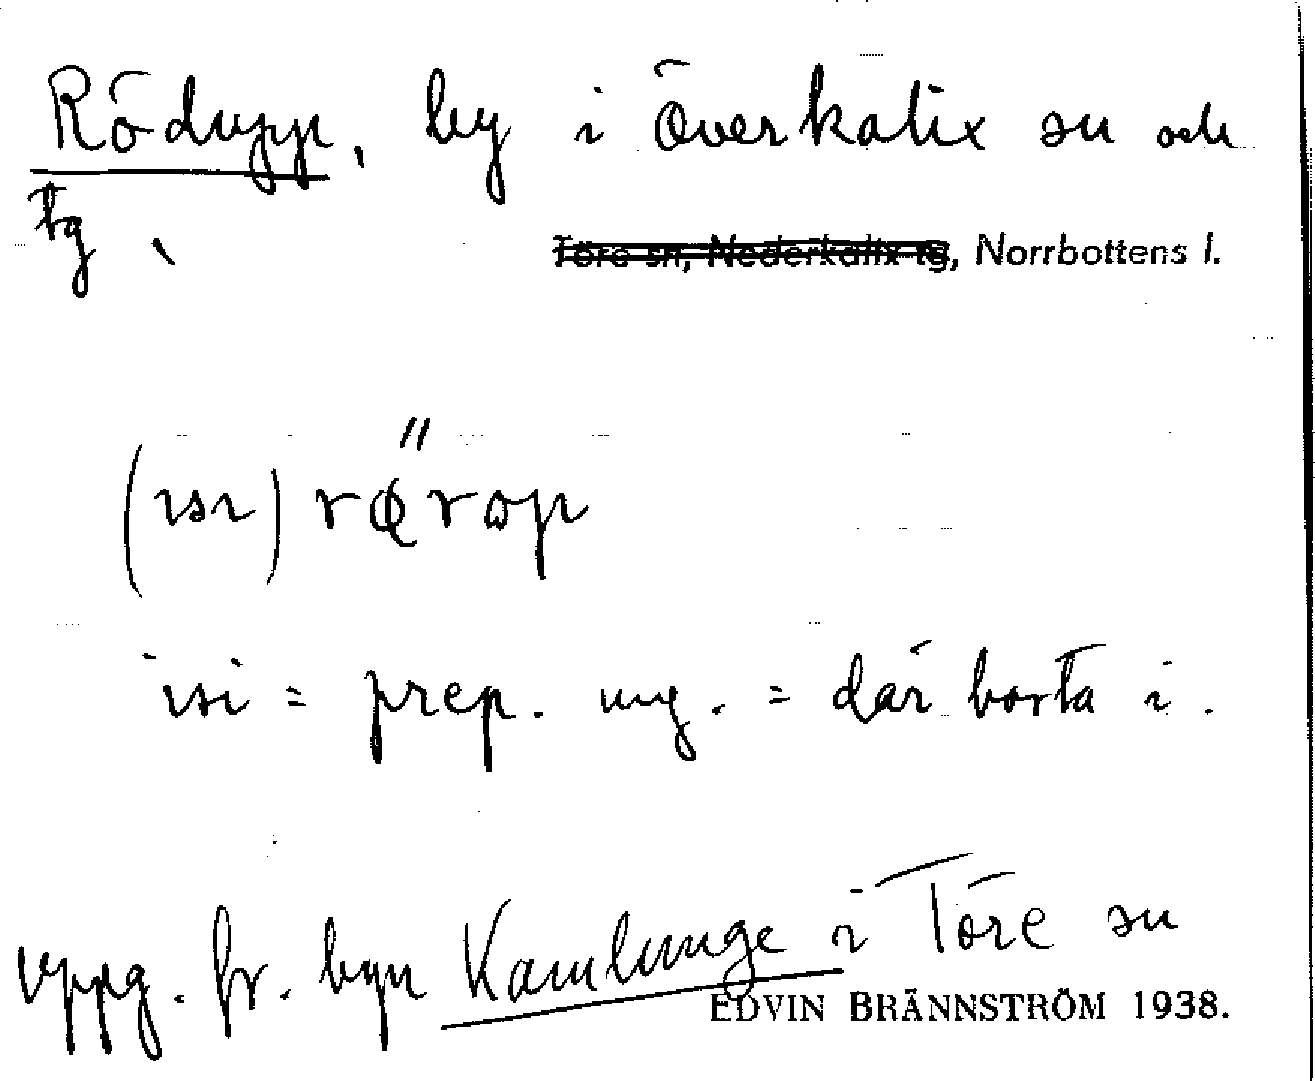 Rödupp, by i Överkalix sn och
tg,
Töre sn, Nederkalix tg, Norrbottens l.
(ısı)
isi = prep. ung. = där borta i.
uppg. fr. byn Kamlunge i Töre sn
EDVIN BRÄNNSTRÖM 1938.